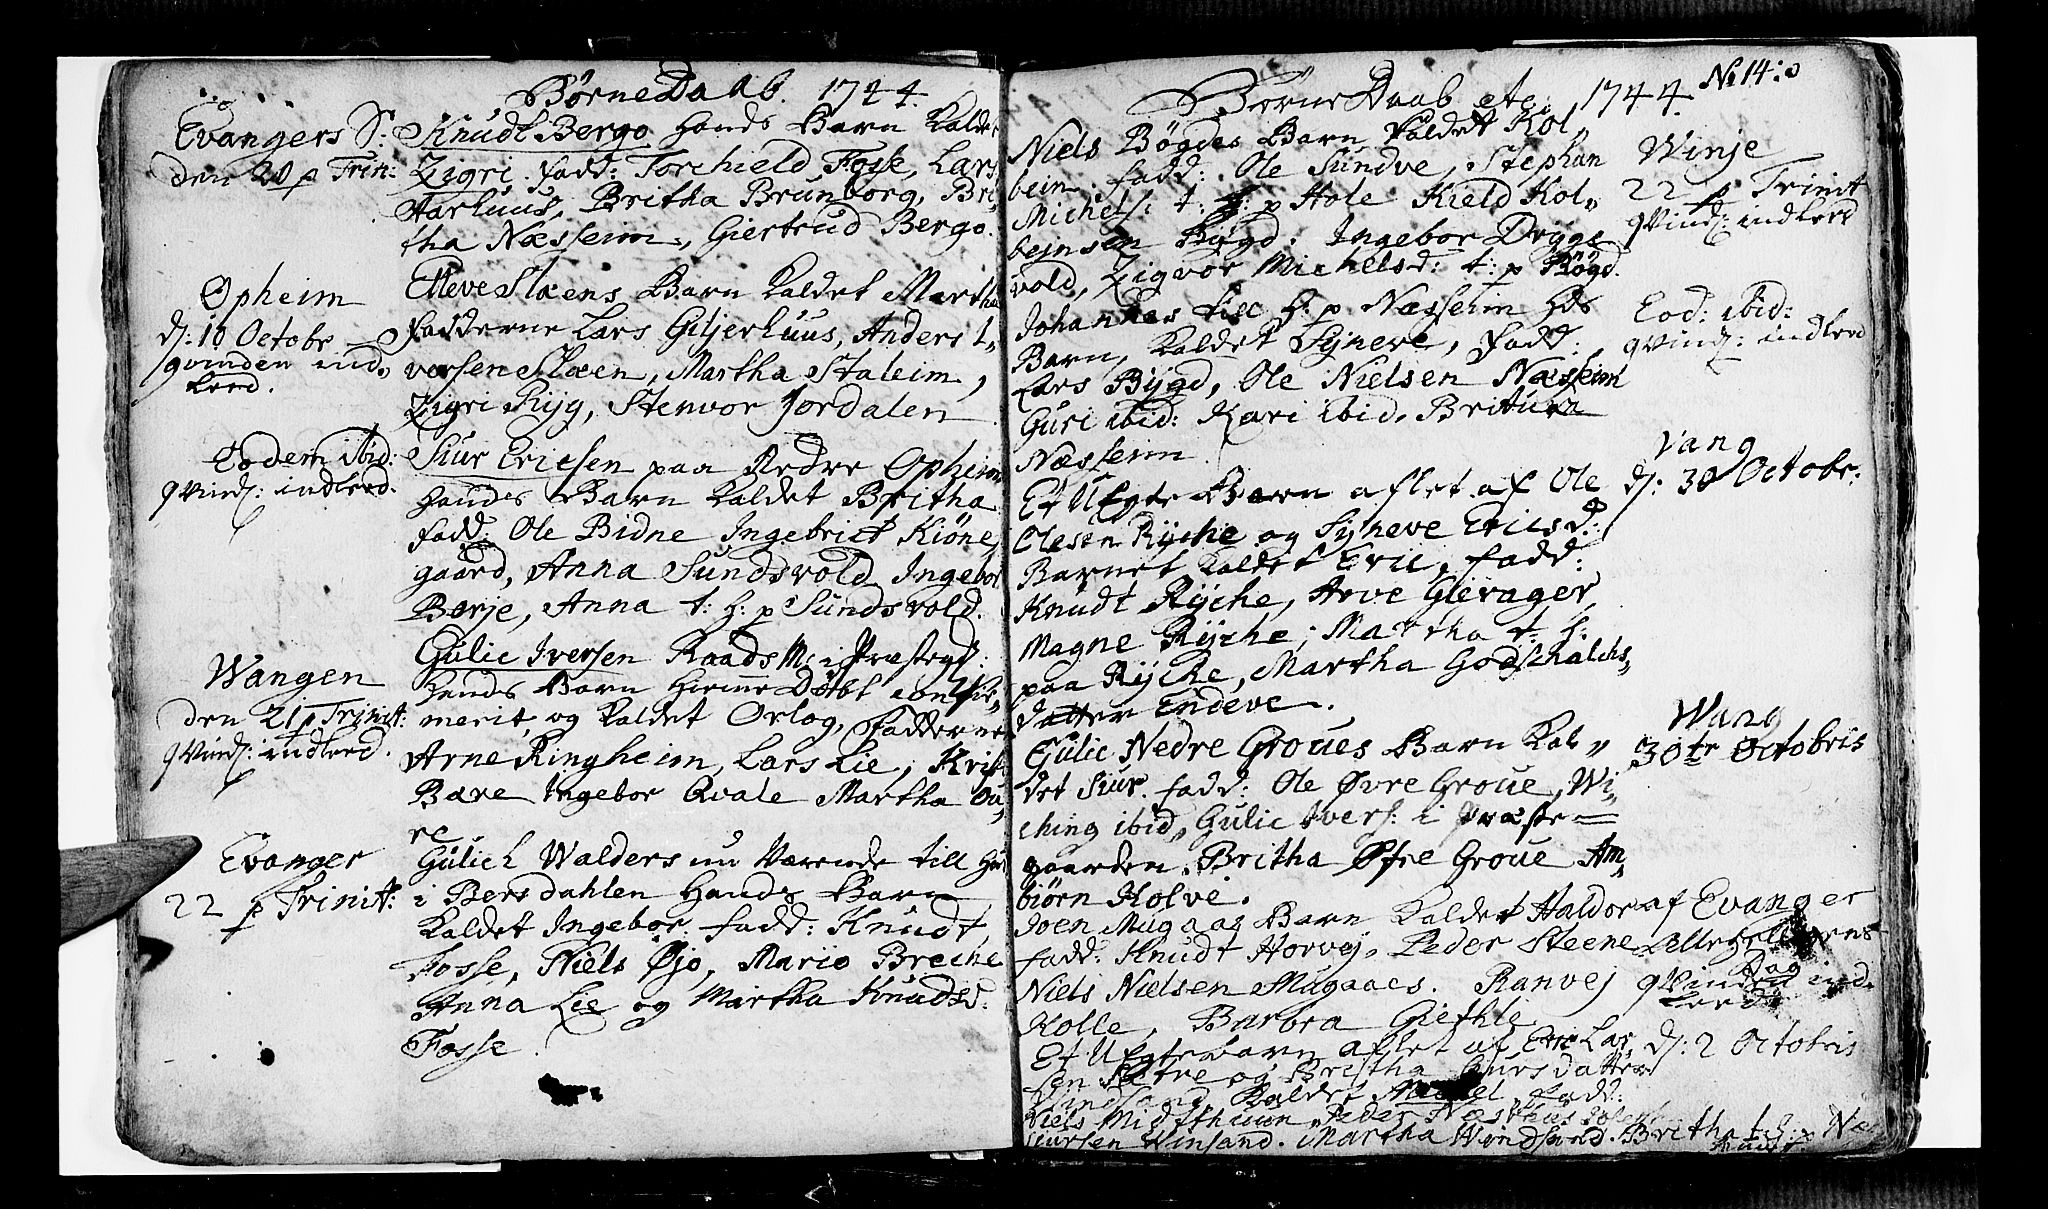 Børne Daab. 1744.
Evangers S:
den 20 p Trin:
Knudt Bergo hands Barn kaldet
Zigri. fadd: Torchield Fosse, Lars
Aarhuus, Britha Brunborg, Bri,
tha Næsseim, Giertrud Bergo.
Opheim
d: 10 Octobr
qvinden ind,
leed.
Elleve Slæens Barn kaldet Martha
Fadderne Lars Giljerhuus, Anders I,
versen Slæen, Martha Staleim,
Zigri Ryg, Stenvor Jordalen
Eodem ibid:
qvind: indleed.
Siur Ericsen paa Nedre Opheim
hands Barn kaldet Britha
fadd: Ole Bidne Ingebrict Kiöne,
gaard, Anna Sundsvold Ingebor
Børje, Anna t: h: p Sundsvold.
Wangen
den 21 p Trinit:
qvind: indleed.
Gulic Iversen Raads M: i Præstegd:
hands Barn hieme Döbt confir,
merit, og kaldet Orlog, Fadderne
Arne Ringheim, Lars Lie, Krist
Bære Ingebor Qvale Martha Qv,
re
Evanger
22 p Trinit:
Gulich Walders nu værende till Huus
i Bersdahlen hands Barn
kaldet Ingebor. fadd: Knudt
Fosse, Niels Øjo, Mario Breche
Anna Lie og Martha Knudsd:
Fosse.
Börne Daab etc: 1744.
No 14:
Niels Bögdes Barn kaldet Kol,
bein. fadd: Ole Sundve, Stephan
Michels: t: h: p Hole Kield Kol,
beinsen Bygd. Ingebor Drygs
vold, Zigvor Michelsd: t: p Bögd.
Winje
22 p Trinit
qvind: indleed
Johannes till h: p Næsseim hds
Barn, kaldet Syneve, fadd:
Lars Bygd, Ole Nielsen Næsseim
Guri ibid: Kari ibid. Brita
Næsseim
Eod: ibid:
qvind: indleed
Et Uegte Barn aflet af Ole
Olesen Ryche og Syneve Ericsd:
Barnet kaldet Eric, fadd:
Knudt Ryche, Arve Gierager
Magne Ryche, Martha t: h:
paa Ryche, Martha Godschalchs,
datter Endeve.
Vang
d: 30 Octobr:
Gulic Nedre Groues Barn kal,
det Siur. fadd: Ole Øvre Groue, Wi,
ching ibid, Gulic Ivers: i Præste=
gaarden. Britha Øfre Groue Am,
biörn Kolve.
Wang
30te Octobris
Joen Mugaas Barn kaldet Haldor
fadd: Knudt Horvej, Peder Steene
Niels Nielsen Mugaaes. Ranvej
Kolle, Barbra Giethle
af Evanger
Allehelgens
Dag
qvinden ind,
leed
Et Uegte Barn aflet af Eric Lar,
sen Sætre og Britha Siursdatter
Vindsand kaldet Michel, fadd:
Niels Midtthuun, Peder
Siursen Winsand. Martha Windsand. Britha t: h: p Næ
thuus.
d: 2 Octobris